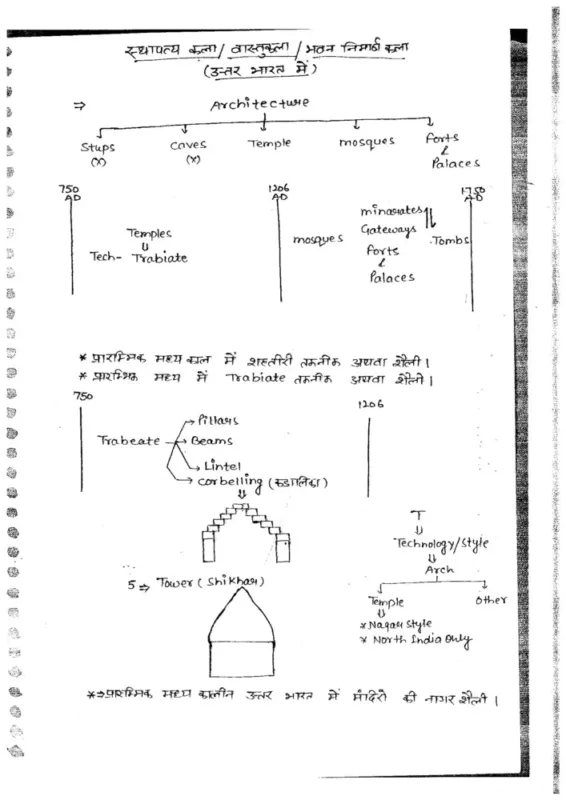 स्थापत्य कला/ वास्तुकला / भवन निर्माण कला
(उत्तर भारत में)
⇒ Architecture
Stups Caves Temple mosques Forts
(x) (x) &
Palaces
750 1206 1750
AD AD AD
minarates
Temples Gateways
mosques Tombs
Tech- Trabiate Forts
&
Palaces
* प्रारम्भिक मध्य काल में शहतीरी तकनीक अथवा शैली ।
* प्रारम्भिक मध्य में Trabiate तकनीक अथवा शैली ।
750 1206
Pillars
Trabeate Beams
Lintel
Corbelling
T
Technology/Style
Arch
5 ⇒ Tower ( Shikhar)
Temple Other
* Nagar Style
* North India Only
*⇒ प्रारम्भिक मध्य कालीन उत्तर भारत में मंदिरों की नागर शैली ।